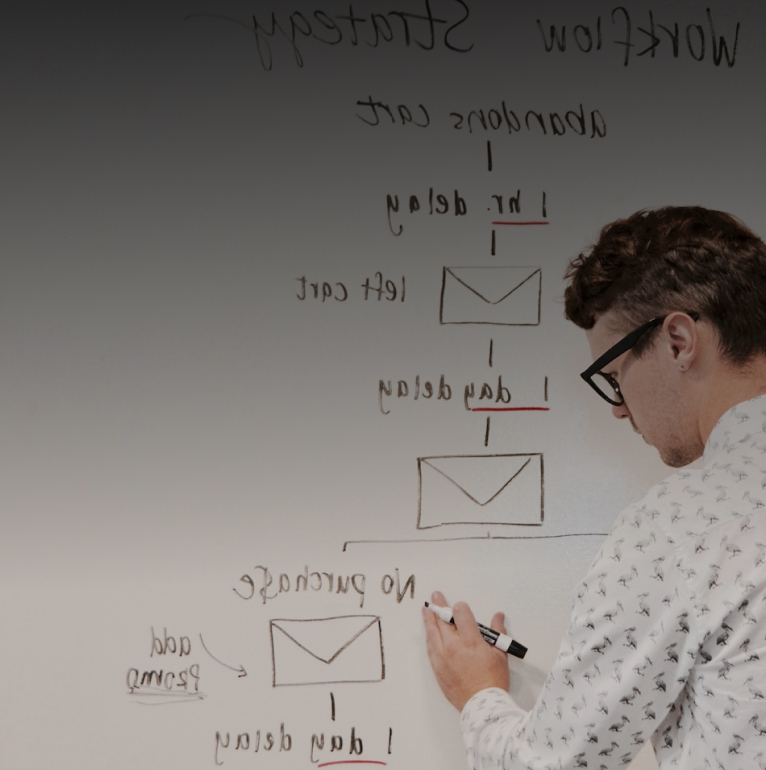 Workflow Strategy
abandons cart
1 hr. delay
left cart
1 day delay
No purchase
add
promo
1 day delay